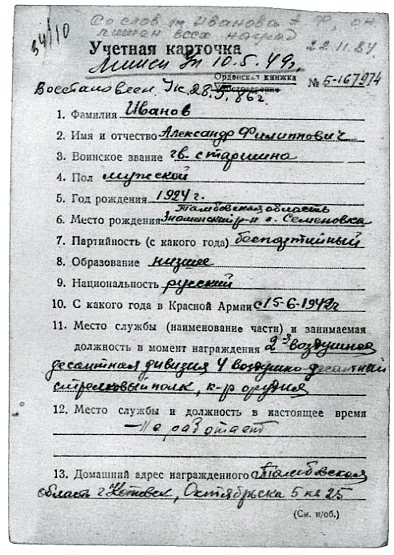 Со слов гр. Иванова А. Ф., он
лишен всех наград
34/10
22.11.84
Учетная карточка
10.5.49г.
Орденская книжка
Удостоверение
№ 5-167974
Восстановлен Ук 28.3.86г.
1. Фамилия Иванов
2. Имя и отчество Александр Филиппович
3. Воинское звание гв. старшина
4. Пол мужской
5. Год рождения 1924 г.
Тамбовская область
6. Место рождения Знаменский р-н с. Семеновка
7. Партийность (с какого года) беспартийный
8. Образование низшее
9. Национальность русский
10. С какого года в Красной Армии с 15-6-1942г
11. Место службы (наименование части) и занимаемая
должность в момент награждения 2-я воздушно
десантная дивизия 4 воздушно-десантный
стрелковый полк, к-р орудия
12. Место службы и должность в настоящее время
Не работает
13. Домашний адрес награжденного Тамбовская
область г. Котовск, Октябрьская 5 кв 25
(См. н/об.)